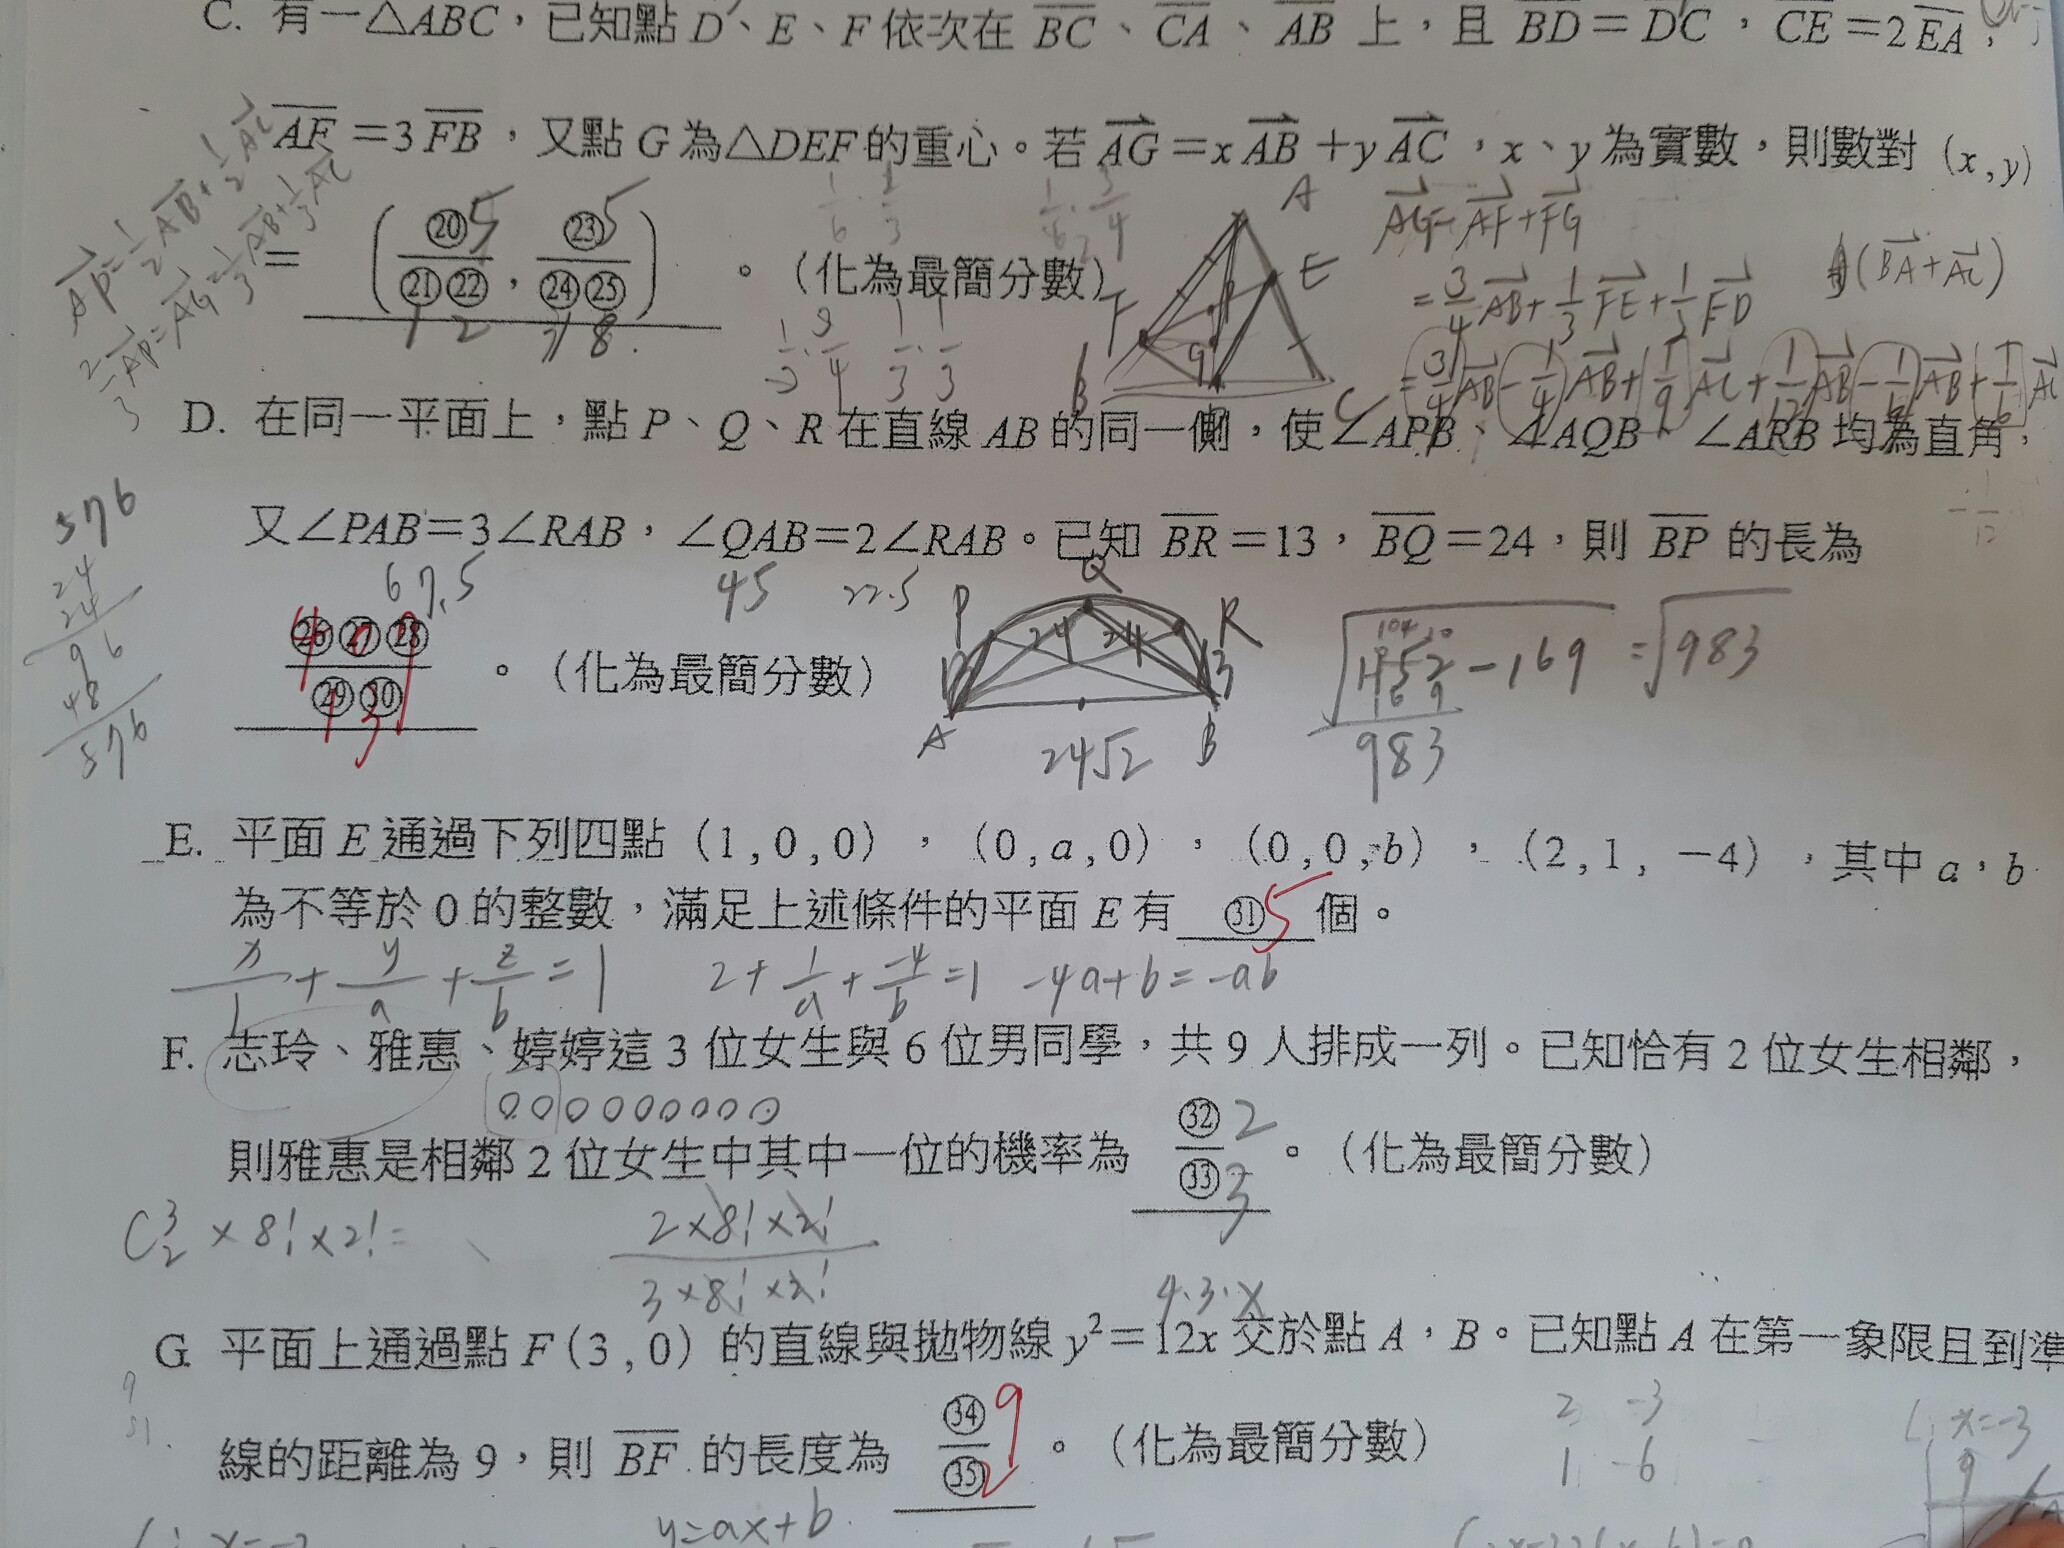 C. 有一△ABC，已知點 D、E、F 依次在 BC、CA、AB 上，且 BD＝DC，CE＝2EA，
AF＝3FB，又點 G 為△DEF 的重心。若 AG＝xAB＋yAC，x、y 為實數，則數對 (x,y)
AP=1/2AB+1/2AC
2/3AP=AG=1/3AB+1/3AC
＝(⑳/㉑㉒, ㉓/㉔㉕)。（化為最簡分數）
5 5
12 18
A
E
F
G
B
C
AG=AF+FG
=3/4AB+1/3FE+1/3FD
(BA+AC)
=3/4AB-1/4AB+1/9AC+1/12AB-1/6AB+1/6AC
D. 在同一平面上，點 P、Q、R 在直線 AB 的同一側，使∠APB、∠AQB、∠ARB 均為直角，
又∠PAB＝3∠RAB，∠QAB＝2∠RAB。已知 BR＝13，BQ＝24，則 BP 的長為
67.5 45 22.5
576
24
24
96
48
576
㉖㉗㉘/㉙㉚。（化為最簡分數）
407
13
P Q R
24 24
13 13
A B
24√2
√1152-169=√983
983
E. 平面 E 通過下列四點（1,0,0），（0,a,0），（0,0,b），（2,1,－4），其中 a，b
為不等於 0 的整數，滿足上述條件的平面 E 有 ㉛ 個。
5
x/1+y/a+z/b=1 2+1/a+-4/b=1 -4a+b=-ab
F. 志玲、雅惠、婷婷這 3 位女生與 6 位男同學，共 9 人排成一列。已知恰有 2 位女生相鄰，
則雅惠是相鄰 2 位女生中其中一位的機率為 ㉜/㉝。（化為最簡分數）
2
3
C3 2×8!×2!= 2×8!×2!/3×8!×2!
4·3·x
G. 平面上通過點 F（3,0）的直線與拋物線 y²＝12x 交於點 A，B。已知點 A 在第一象限且到準
線的距離為 9，則 BF 的長度為 ㉞/㉟。（化為最簡分數）
9
2
2 -3
1 -6
L: x=-3
9
y=ax+b